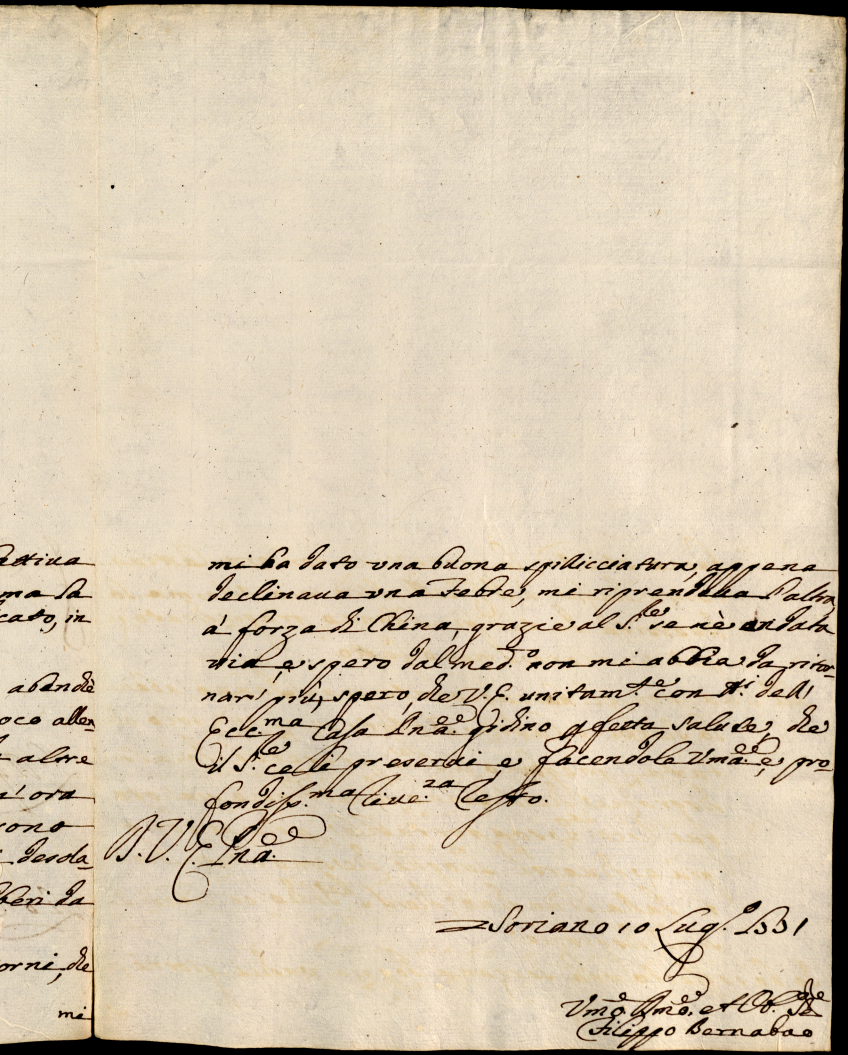 ma la
cato, in
abenchè
poco allen=
altre
n'ora
sono
desola=
beri da
orni, che
mi
mi ha dato vna buona spillicciatura, appena
declinaua vna Febre, mi riprendeua l'altra,
á forza di China, grazie al S.re se nè andata
uia, e spero dal med.o non mi abbia da ritor=
nar' più, spero, che V.E. unitam.te con tt.i dell'
Ecc.ma Casa Pn̄a godino perfetta salute, che
il S.re ce li preserui, e facendole Vma, e pro=
fondiss.ma riue.za resto.
D.V.E. Pn̄a
Soriano 10 Lug.o 1331
Vmo Dmo. et Ob. Se.re
Filippo Bernabao